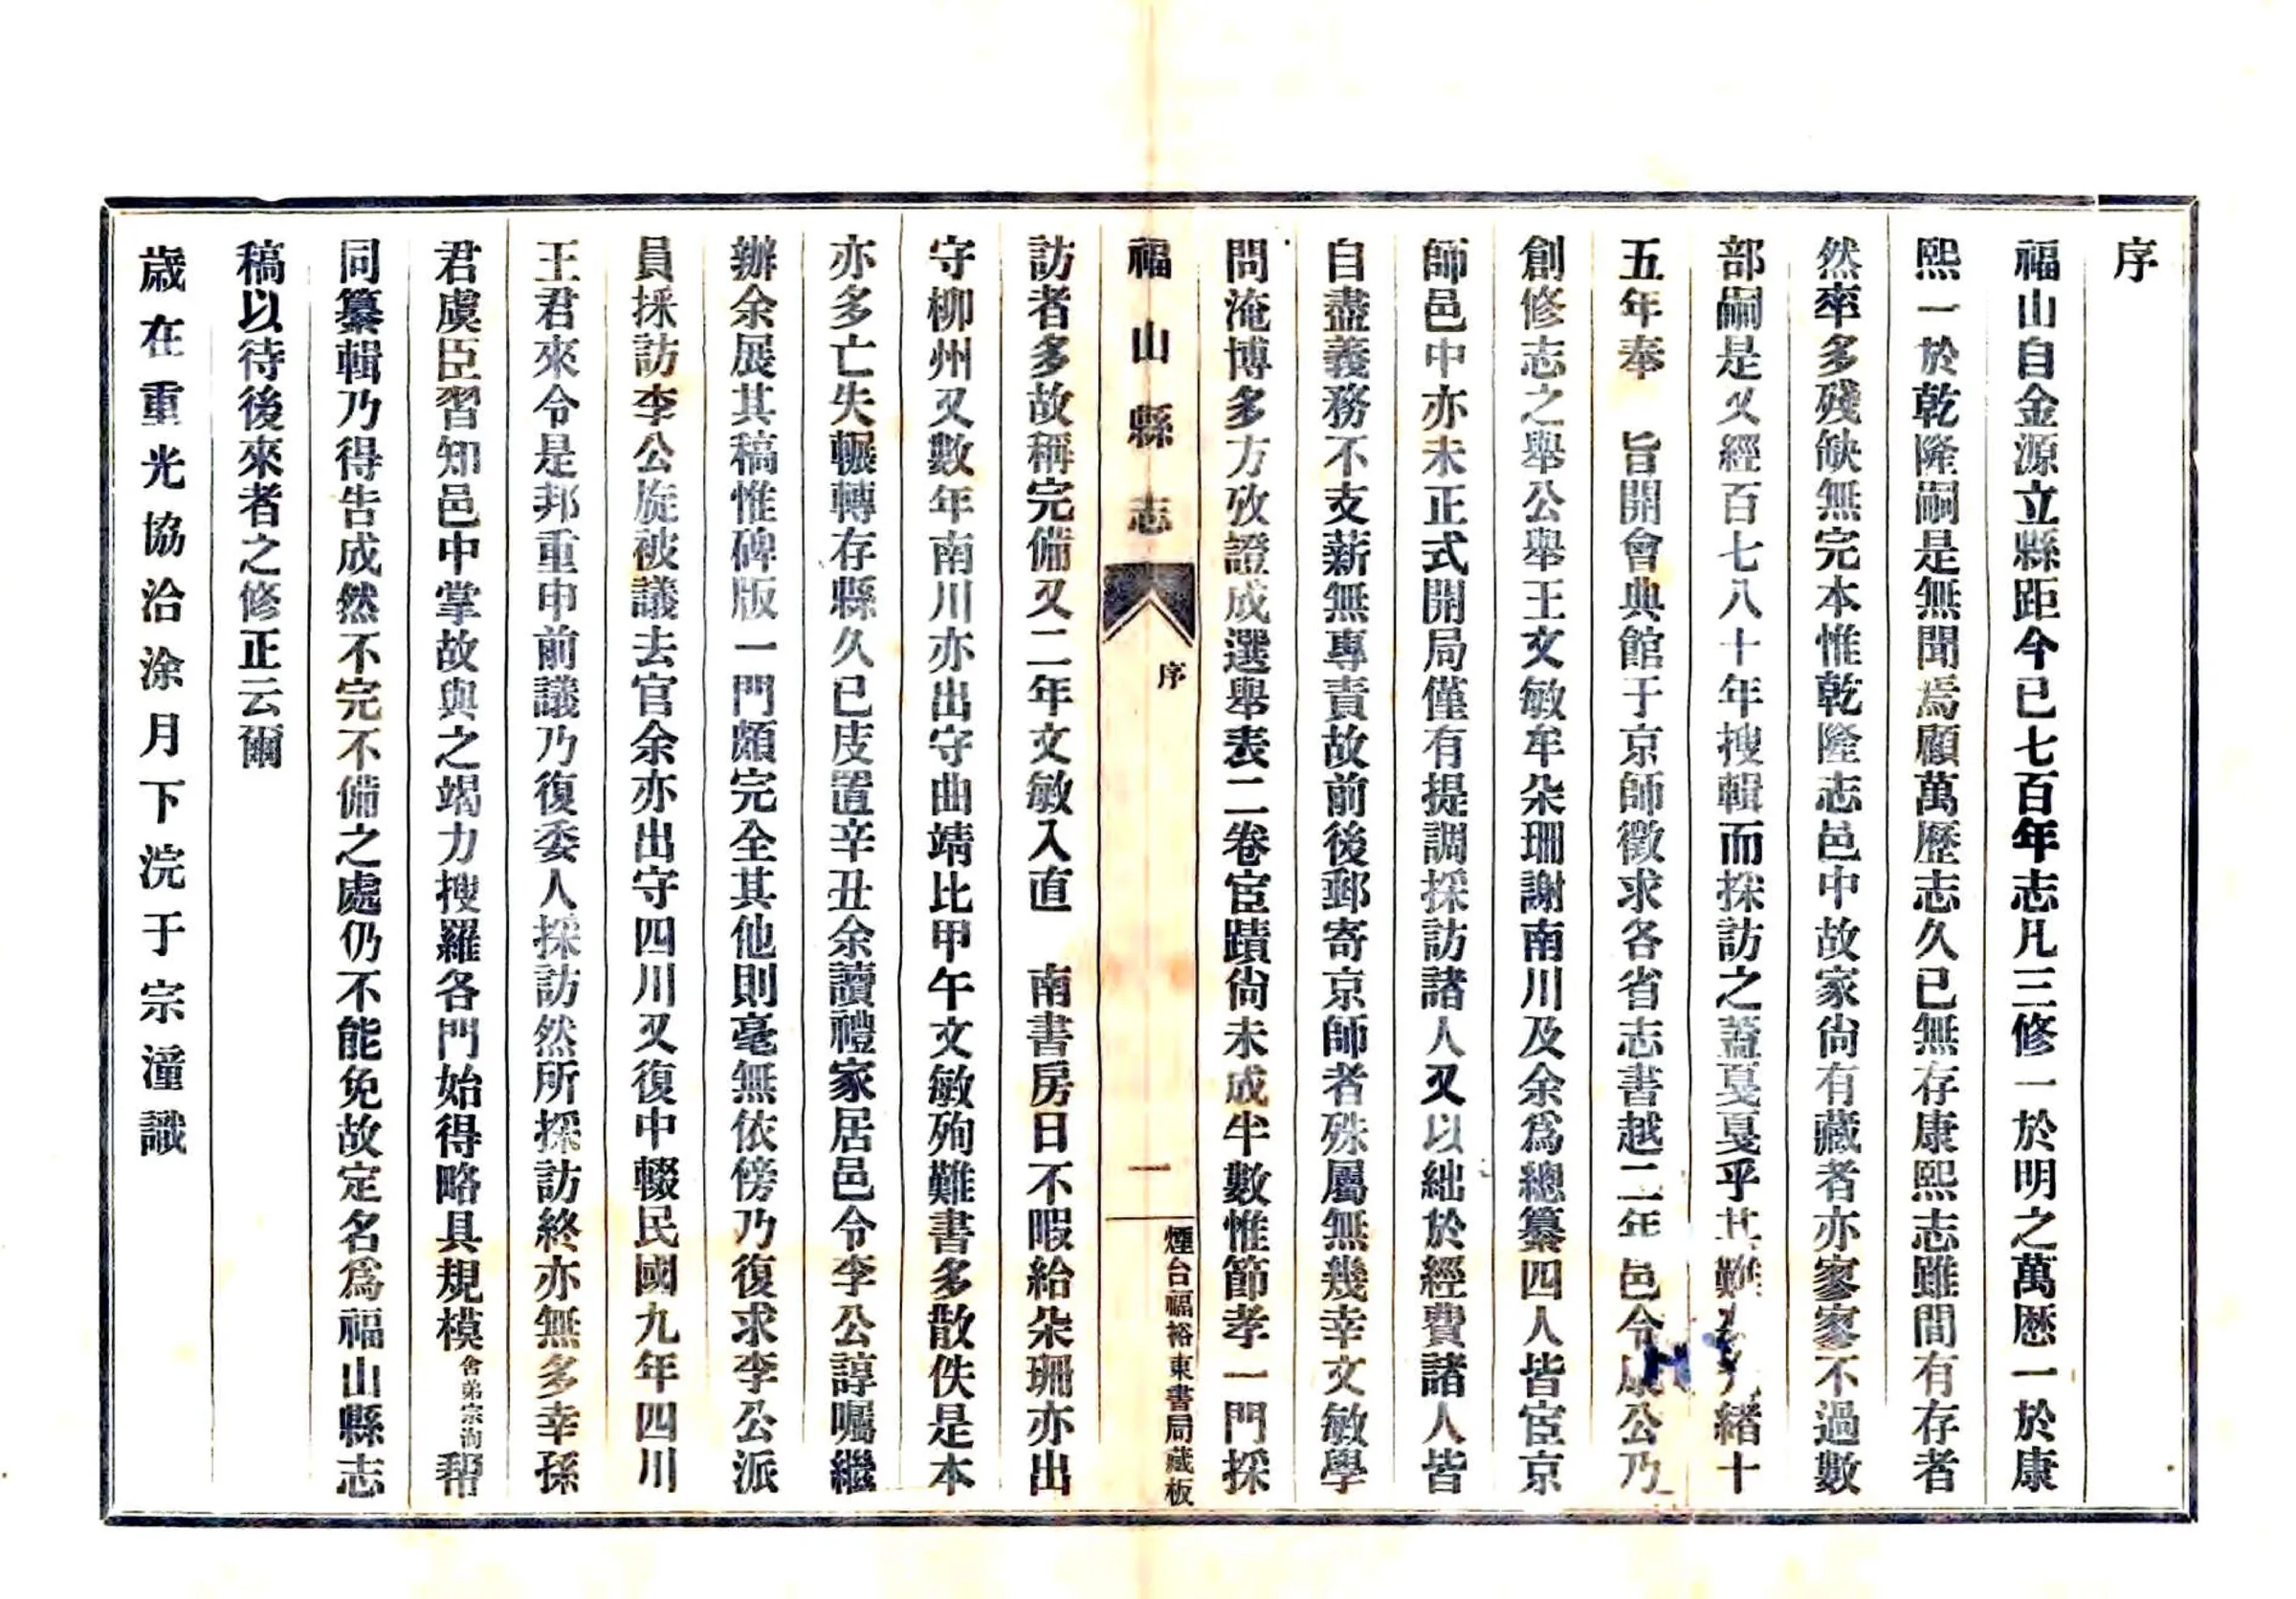 序
福山自金源立縣距今已七百年志凡三修一於明之萬歷一於康
熙一於乾隆嗣是無聞焉顧萬歷志久已無存康熙志雖間有存者
然率多殘缺無完本惟乾隆志邑中故家尙有藏者亦寥寥不過數
部嗣是又經百七八十年搜輯而採訪之蓋戛戛乎其難 緒十
五年奉 旨開會典館于京師徵求各省志書越二年邑令康公乃
創修志之舉公舉王文敏牟朵珊謝南川及余爲總纂四人皆宦京
師邑中亦未正式開局僅有提調採訪諸人又以絀於經費諸人皆
自盡義務不支薪無專責故前後郵寄京師者殊屬無幾幸文敏學
問淹博多方攷證成選舉表二卷宦蹟尙未成半數惟節孝一門採
福山縣志
序
一
煙台福裕東書局藏板
訪者多故稱完備又二年文敏入直 南書房日不暇給朵珊亦出
守柳州又數年南川亦出守曲靖比甲午文敏殉難書多散佚是本
亦多亡失輾轉存縣久已庋置辛丑余讀禮家居邑令李公諄囑繼
辦余展其稿惟碑版一門頗完全其他則毫無依傍乃復求李公派
員採訪李公旋被議去官余亦出守四川又復中輟民國九年四川
王君來令是邦重申前議乃復委人採訪然所採訪終亦無多幸孫
君虞臣習知邑中掌故與之竭力搜羅各門始得略具規模舍弟宗洵帮
同纂輯乃得告成然不完不備之處仍不能免故定名爲福山縣志
稿以待後來者之修正云爾
歲在重光協洽涂月下浣于宗潼識